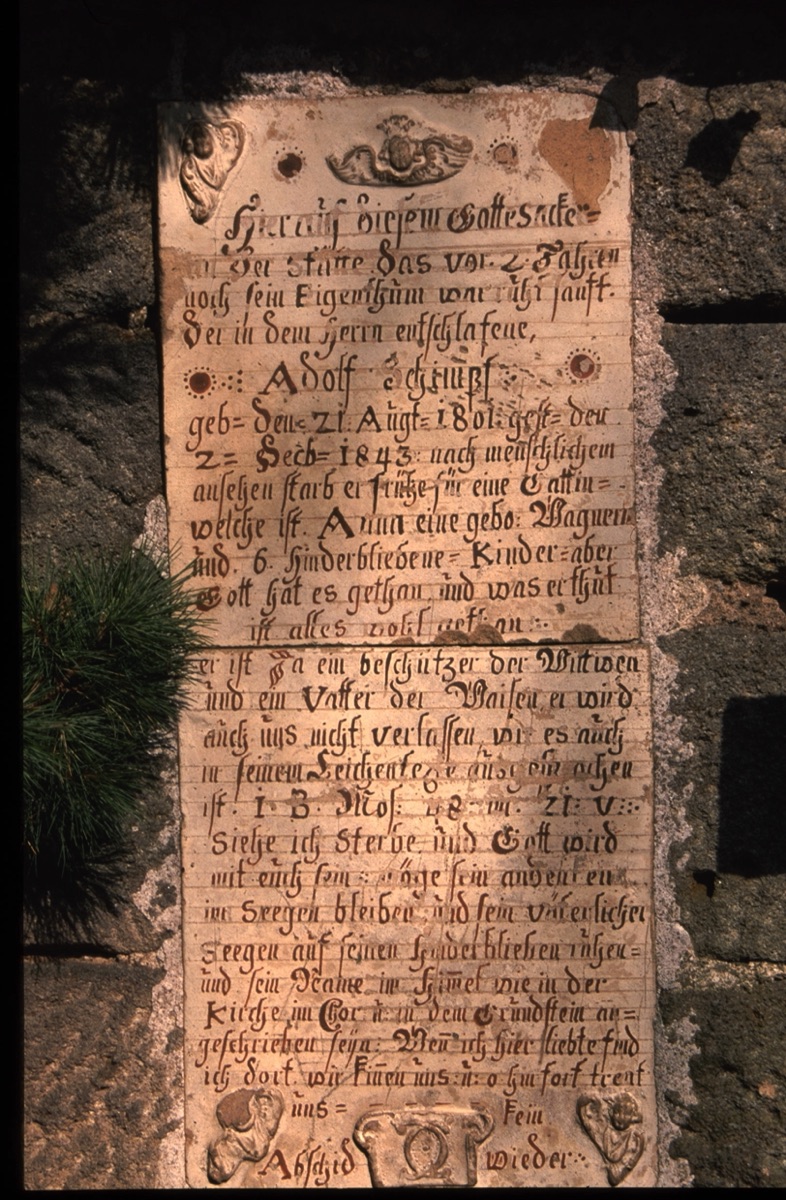 Hier auf diesem Gottesacker=
an der Stätte das vor 2 Jahren
noch sein Eigenthum war ruht sanft.
Der in dem Herrn entschlafene,
Adolf
geb= den 21 Augt= 1801: gest= den
2= Decb= 1843: nach menschlichem
ansehen starb er frühe für eine Gattin=
welche ist. Anna eine gebo: Wagnern
und. 6. hinderbliebene= Kinder=aber
Gott hat es gethan und was er thut
ist alles wohl gethan
er ist Ja ein beschützer der Wittwen
und ein Vatter der Waisen er wird
auch uns nicht verlassen, wie es auch
in seinem
ist. I. B. Mos: 48 21: V:
Siehe ich Sterbe und Gott wird
mit euch sein: möge sein andenken
im Seegen bleiben und sein väterlicher
Seegen auf seinen hinderblieben ruhen=
und sein Name im Him̅el wie in der
Kirche im Chor u: in dem Grundstein an=
geschrieben seyn: Wen̅ ich hier liebte find
ich dort. wir
uns= kein
Abschid wieder